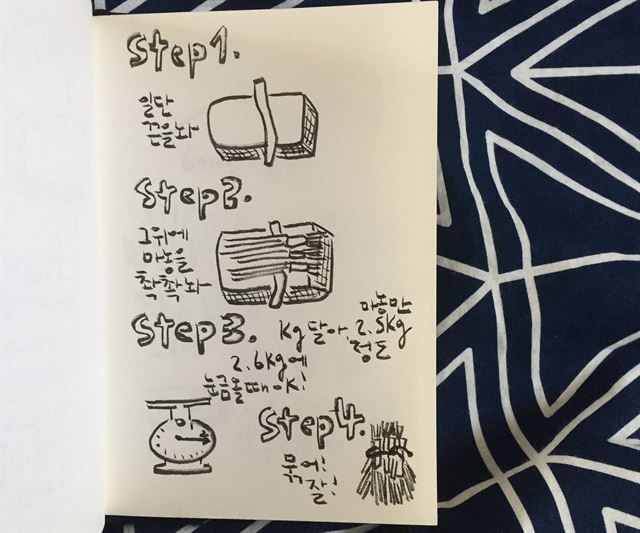 Step1.
일단
끈을놔
Step2.
그위에
마농을
촥촥놔
Step3.
kg달아.
마농만
2.5kg
정도
2.6kg에
눈금올때OK!
Step4.
묶어!
잘!